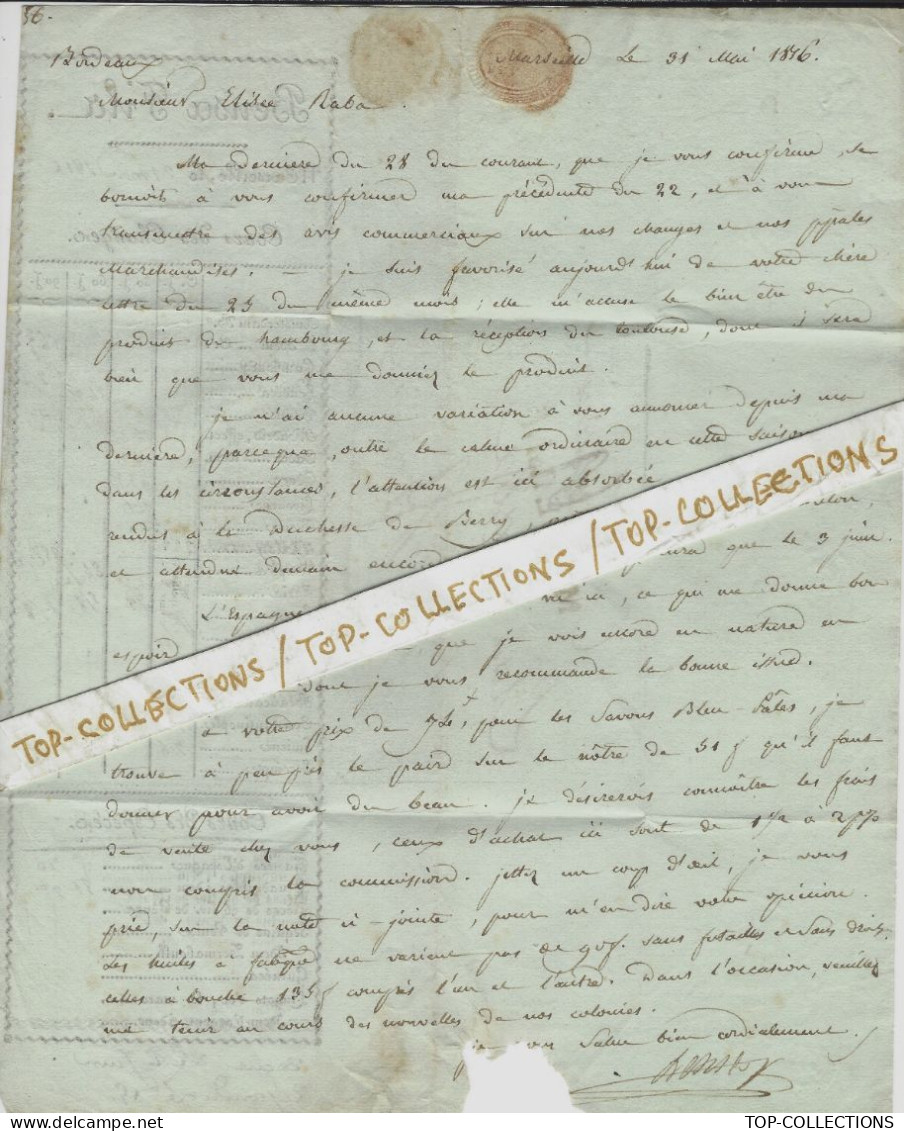 36.
Bordeaux
Marseille le 31 Mai 1816.
Monsieur Elisée Raba.
Ma dernière du 28 du courant, que je vous confirme, se
bornoit à vous confirmer ma précédente du 22, et à vous
transmettre des avis commerciaux sur nos changes et nos ppales
marchandises. – je suis favorisé aujourd'hui de votre chère
lettre du 25 du même mois ; elle m'accuse le bien être du
produit du hambourg, et la réception du toulouse, dont il sera
bien que vous me donniez le produit.
je n'ai aucune variation à vous annoncer depuis ma
dernière, parceque, outre le calme ordinaire en cette saison
dans les circonstances, l'attention est ici absorbée
rendus à la Duchesse de Berry,
et attendue demain encore que le 3 juin.
L'Espagne ici, ce qui me donne bon
espoir que je vois encore en nature en
dont je vous recommande la bonne issue.
à votre prix de 74, pour les Savons Bleu-Pâles, je
trouve à peu près le pair sur la nôtre de 51 f qu'il faut
donner pour avoir du beau. je désirerois connoître les frais
de vente chez vous, ceux d'achat ici sont de 1 1/2 à 2 pp%
non compris la commission. jettez un coup d'œil, je vous
prie, sur la note ci-jointe, pour m'en dire votre opinion.
Les huiles à fabrique ne varient pas de 90 f. sans futailles et sans droits,
celles à bouche 135 f compris l'un et l'autre. Dans l'occasion, veuillez
me tenir au cours des nouvelles de nos colonies.
je vous salue bien cordialement.
TOP-COLLECTIONS / TOP-COLLECTIONS / TOP-COLLECTIONS
TOP-COLLECTIONS